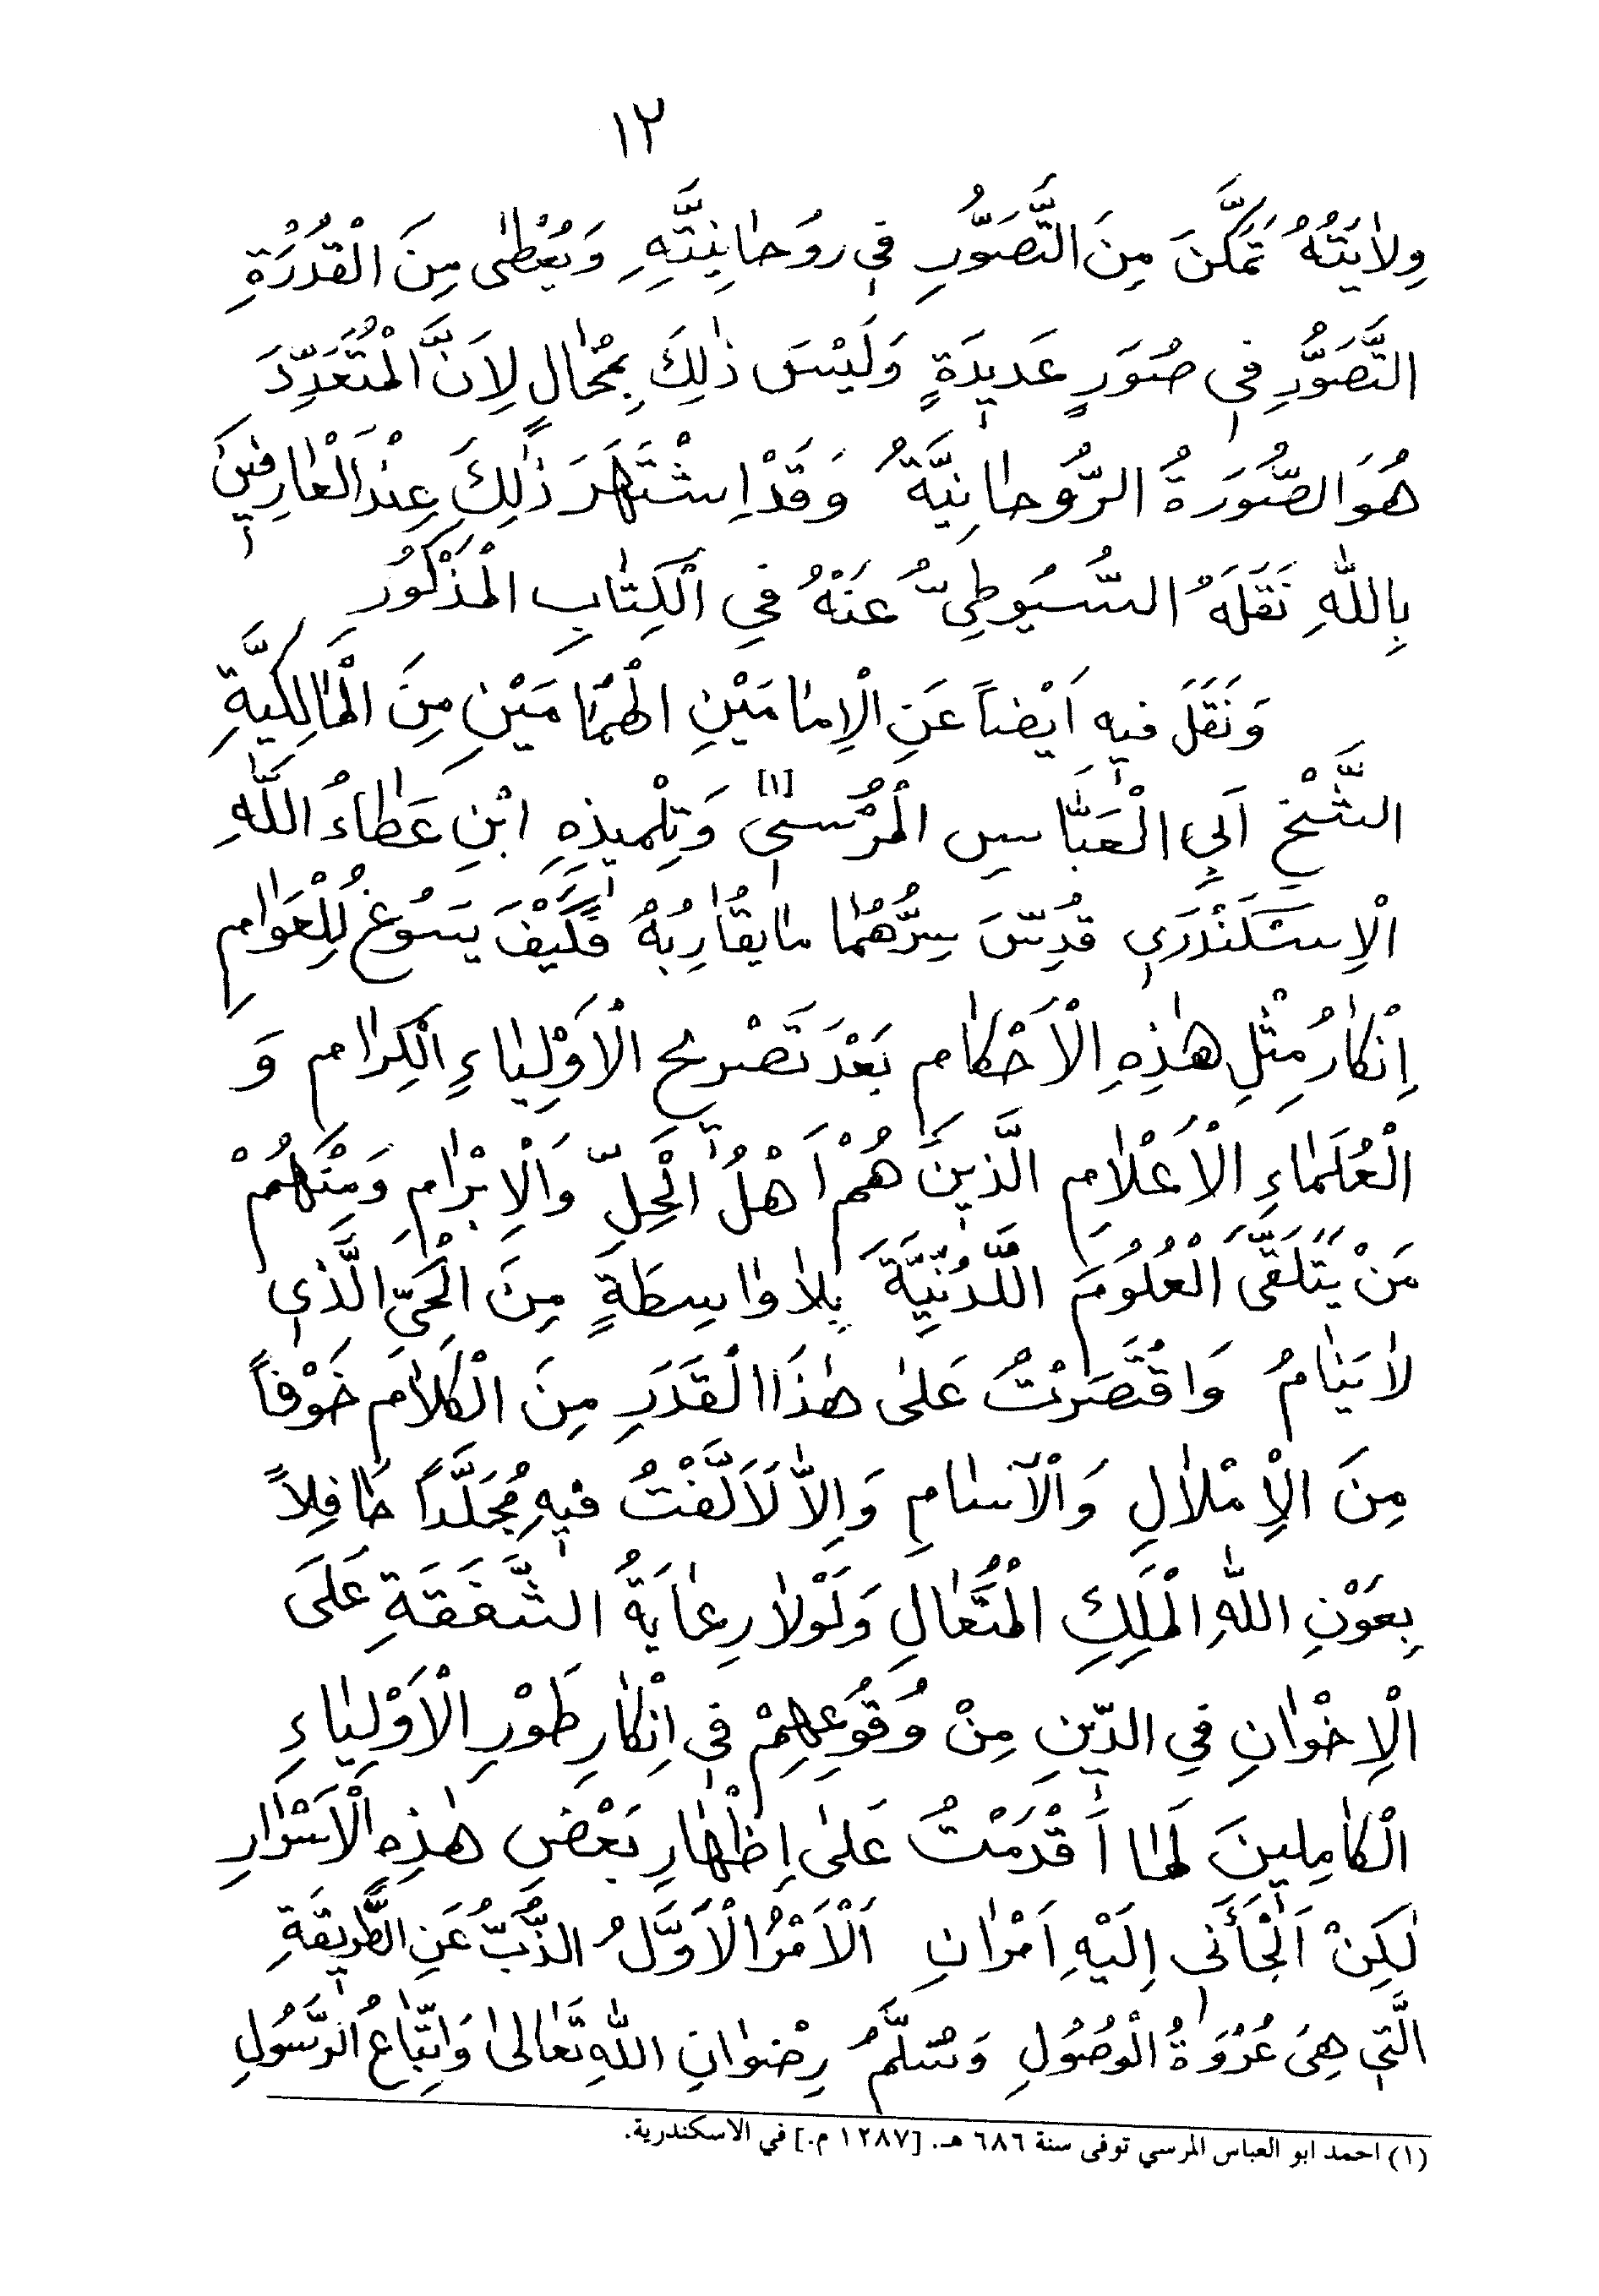 ١٢
وِلاٰيَتُهُ تَمَكَّنَ مِنَ التَّصَوُّرِ فِي رُوحَانِيَّتِهِ وَيُعْطٰى مِنَ الْقُدْرَةِ
التَّصَوُّرِ فِي صُوَرٍ عَدِيدَةٍ وَلَيْسَ ذٰلِكَ بِمُحٰالٍ لِاَنَّ الْمُتَعَدِّدَ
هُوَ الصُّورَةُ الرُّوحٰانِيَّةُ وَقَدْ اِشْتَهَرَ ذٰلِكَ عِنْدَ الْعٰارِفِينَ
بِاللّٰهِ نَقَلَهُ السُّيُوطِيُّ عَنْهُ فِي الْكِتٰابِ الْمَذْكُورِ
وَنَقَلَ فِيهِ اَيْضاً عَنِ الْاِمٰامَيْنِ الْهُمَامَيْنِ مِنَ الْمٰالِكِيَّةِ
الشَّيْخِ اَبِي الْعَبّٰاسِ الْمُرْسِيِّ [١] وَتِلْمِيذِهِ ابْنِ عَطٰاءُ اللّٰهِ
الْاِسْكَنْدَرِي قُدِّسَ سِرُّهُمٰا مٰا يُقٰارِبُهُ فَكَيْفَ يَسُوغُ لِلْعَوٰامِ
اِنْكٰارُ مِثْلِ هٰذِهِ الْاَحْكٰامِ بَعْدَ تَصْرِيحِ الْاَوْلِيٰاءِ الْكِرٰامِ وَ
الْعُلَمٰاءِ الْاَعْلاٰمِ الَّذِينَ هُمْ اَهْلُ الْحِلِّ وَالْاِبْرٰامِ وَمِنْهُمْ
مَنْ يَتَلَقَّى الْعُلُومَ اللَّدُنِّيَّةَ بِلاٰ وٰاسِطَةٍ مِنَ الْحَيِّ الَّذِي
لاٰ يَنٰامُ وَاقْتَصَرْتُ عَلىٰ هٰذَا الْقَدَرِ مِنَ الْكَلاٰمِ خَوْفاً
مِنَ الْاِمْلاٰلِ وَالْآسٰامِ وَاِلاّٰ لَاَلَّفْتُ فِيهِ مُجَلَّداً حٰافِلاً
بِعَوْنِ اللّٰهِ الْمَلِكِ الْمُتَعٰالِ وَلَوْلاٰ رِعٰايَةُ الشَّفَقَةِ عَلَى
الْاِخْوٰانِ فِي الدِّينِ مِنْ وُقُوعِهِمْ فِي اِنْكٰارِ طَوْرِ الْاَوْلِيٰاءِ
الْكٰامِلِينَ لَمٰا اَقْدَمْتُ عَلىٰ اِظْهٰارِ بَعْضِ هٰذِهِ الْاَسْرٰارِ
لٰكِنْ اَلْجَأَنِي اِلَيْهِ اَمْرٰانِ اَلْاَمْرُ الْاَوَّلُ الذَّبُّ عَنِ الطَّرِيقَةِ
الَّتِي هِيَ عُرْوَةُ الْوُصُولِ وَسُلَّمُ رِضْوٰانِ اللّٰهِ تَعٰالىٰ وَاتِّبٰاعُ الرَّسُولِ
(١) احمد ابو العباس المرسي توفى سنة ٦٨٦ هـ. [١٢٨٧ م.] في الاسكندرية.